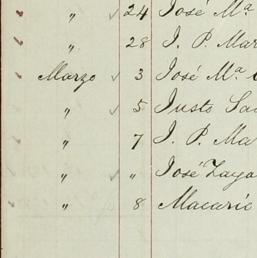 ✓ " ✓ 24 José Mª
✓ " 28 J. P. Mar
✓ Marzo ✓ 3 José Mª
✓ " ✓ 5 Justo Sa
✓ " 7 J. P. Ma
" ✓ " José Zaya
" ✓ 8 Macario